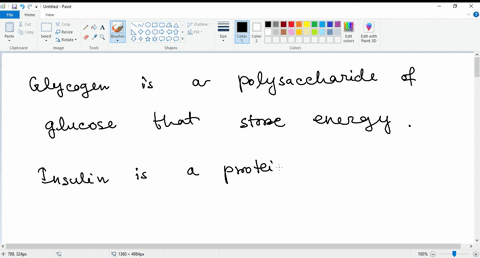 Untitled - Paint
File Home View
Paste
Cut
Copy
Select
Crop
Resize
Rotate
Brushes
Outline
Fill
Size
Color 1
Color 2
Edit colors
Edit with Paint 3D
Clipboard Image Tools Shapes Colors
Glycogen is a polysaccharide of
glucose that store energy.
Insulin is a protei
788, 324px 1360 × 4984px 100%